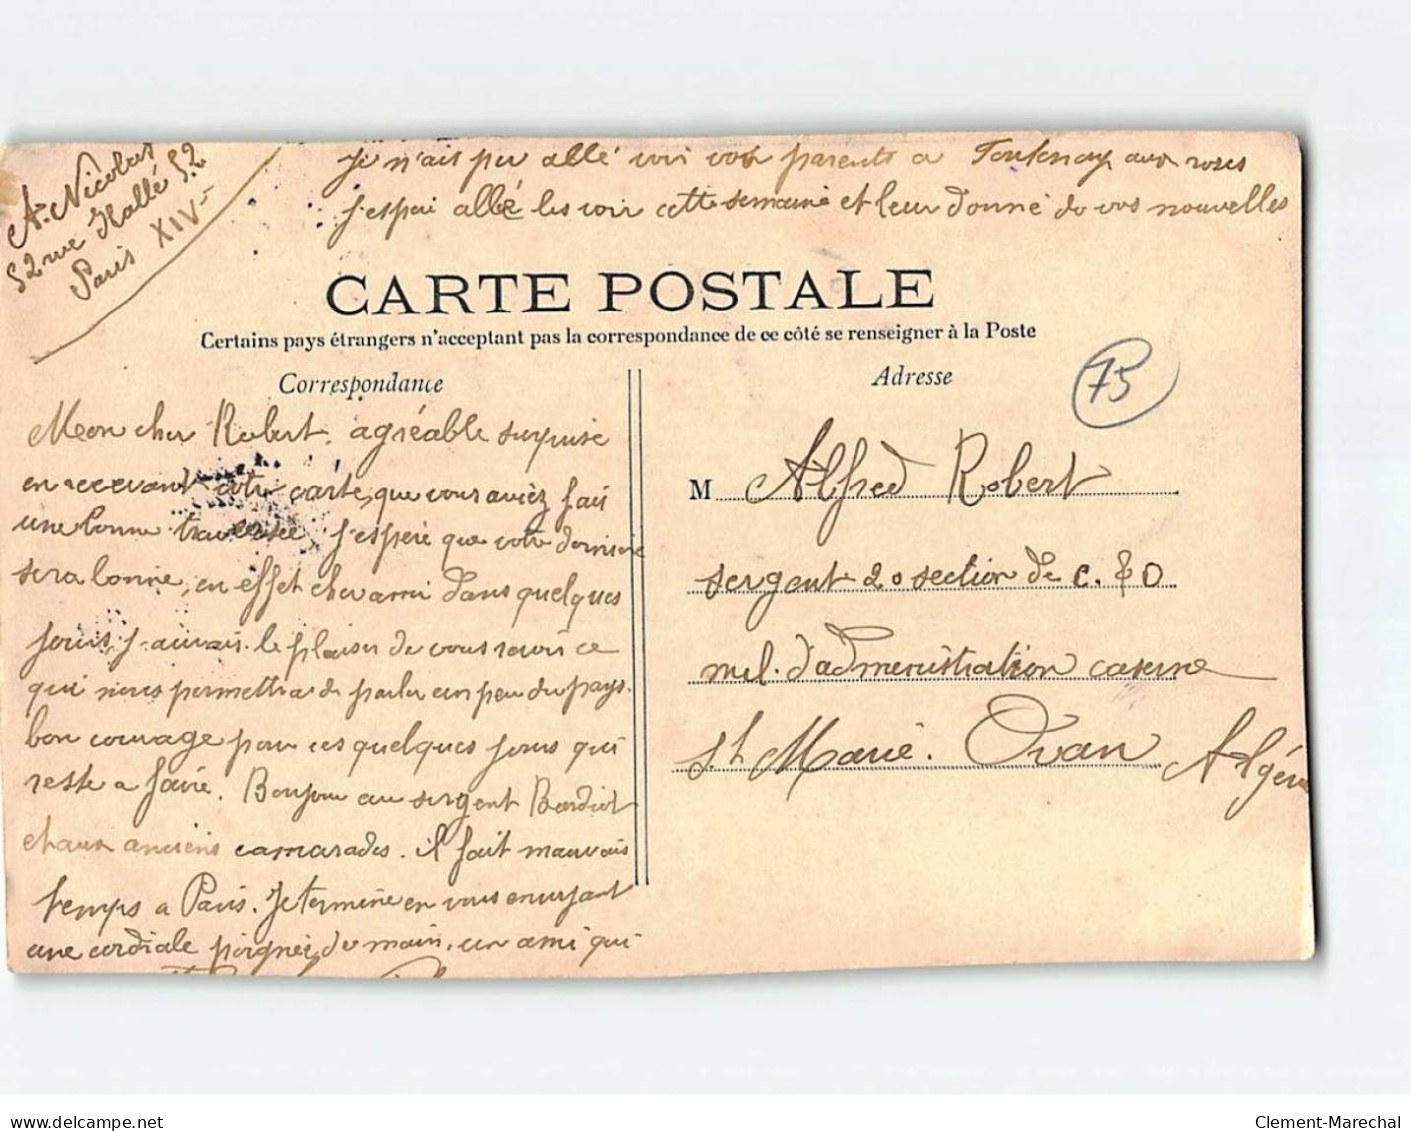 A. Nicolas
52 rue Hallé 52
Paris XIV
Je n'ait pu allé voir vos parents a Fontenay aux roses
J'espere allée les voir cette semaine et leur donné de vos nouvelles
CARTE POSTALE
Certains pays étrangers n'acceptent pas la correspondance de ce côté se renseigner à la Poste
Correspondance
Adresse
75
Mon cher Robert. agréable surprise
en recevant votre carte, que vous aviez fait
une bonne traversée j'espere que votre derniere
sera bonne, en effet cher ami dans quelques
jours j'aurais le plaisir de vous revoir ce
qui nous permettra de parler un peu du pays.
bon courage pour ces quelques jours qui
reste a faire. Bonjour au sergent Bardiot
et aux anciens camarades. il fait mauvais
temps a Paris. Je termine en vous envoyant
une cordiale poignée de main, un ami qui
M Alfred Robert
sergent 20 section de C. & O
mil. d'administration caserne
St Marie. Oran Algérie
delcampe.net
Clement-Marechal